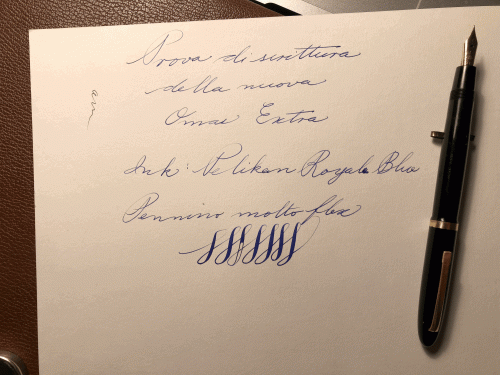 Prova di scrittura
della nuova
Omas Extra
Ink: Pelikan Royal Blu
Pennino molto flex